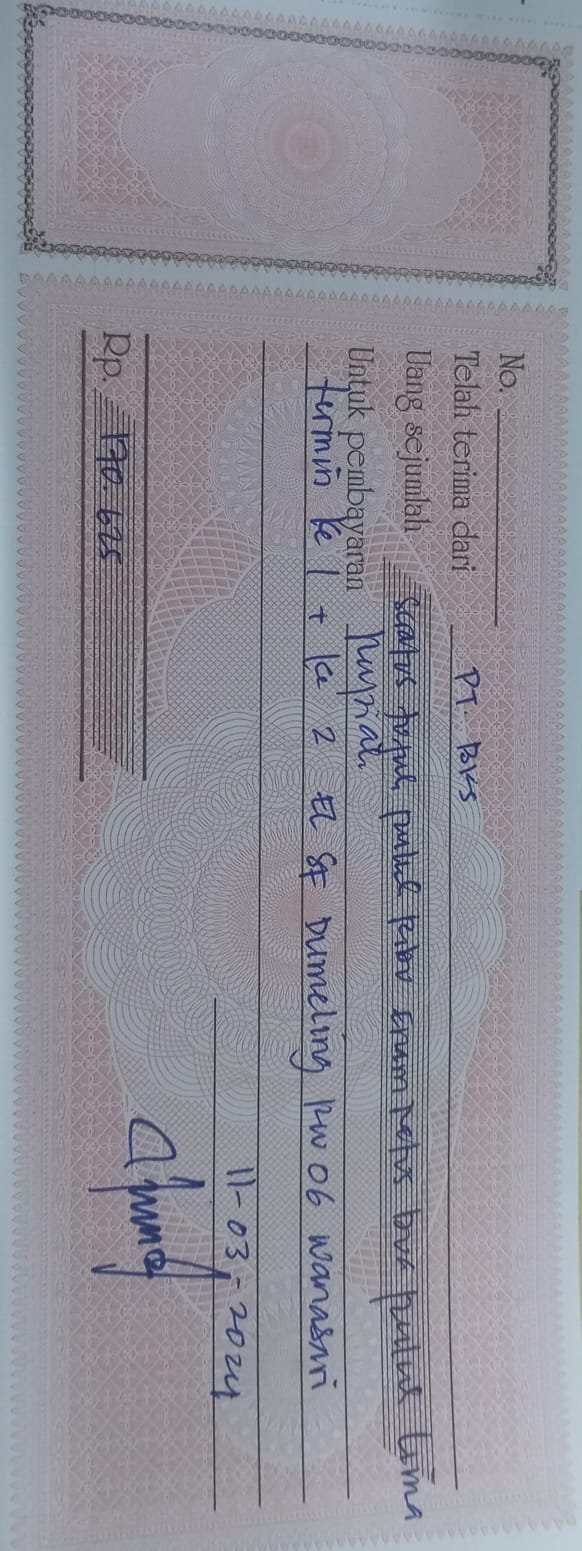 No.
Telah terima dari PT. BKS
Uang sejumlah seratus tujuh puluh ribu Enam ratus dua puluh lima
Untuk pembayaran Rupiah
termin ke 1 + ke 2 EL SF Dumeling RW 06 Wanasari
11-03-2024
Rp. 170.625